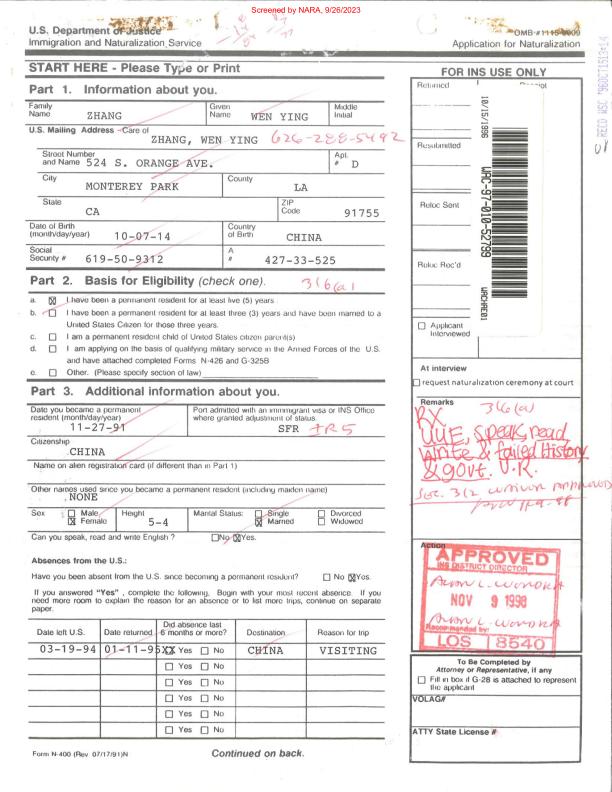 Screened by NARA, 9/26/2023
U.S. Department of Justice
Immigration and Naturalization Service
OMB #1115-0009
Application for Naturalization
START HERE - Please Type or Print
Part 1. Information about you.
Family Name ZHANG Given Name WEN YING Middle Initial
U.S. Mailing Address - Care of ZHANG, WEN YING 626-288-5492
Street Number and Name 524 S. ORANGE AVE. Apt. # D
City MONTEREY PARK County LA
State CA ZIP Code 91755
Date of Birth (month/day/year) 10-07-14 Country of Birth CHINA
Social Security # 619-50-9312 A # 427-33-525
Part 2. Basis for Eligibility (check one). 316(a)
a. ☒ I have been a permanent resident for at least five (5) years
b. ☐ I have been a permanent resident for at least three (3) years and have been married to a
United States Citizen for those three years.
c. ☐ I am a permanent resident child of United States citizen parent(s)
d. ☐ I am applying on the basis of qualifying military service in the Armed Forces of the U.S.
and have attached completed Forms N-426 and G-325B
e. ☐ Other. (Please specify section of law)
Part 3. Additional information about you.
Date you became a permanent resident (month/day/year) 11-27-91
Port admitted with an immigrant visa or INS Office where granted adjustment of status. SFR IR5
Citizenship
CHINA
Name on alien registration card (if different than in Part 1)
Other names used since you became a permanent resident (including maiden name)
NONE
Sex ☐ Male ☒ Female Height 5-4 Marital Status: ☐ Single ☒ Married ☐ Divorced ☐ Widowed
Can you speak, read and write English ? ☐No ☒Yes.
Absences from the U.S.:
Have you been absent from the U.S. since becoming a permanent resident? ☐ No ☒Yes.
If you answered "Yes" , complete the following, Begin with your most recent absence. If you
need more room to explain the reason for an absence or to list more trips, continue on separate
paper.
Date left U.S. Date returned Did absence last 6 months or more? Destination Reason for trip
03-19-94 01-11-95 XX Yes ☐ No CHINA VISITING
☐ Yes ☐ No
☐ Yes ☐ No
☐ Yes ☐ No
☐ Yes ☐ No
☐ Yes ☐ No
Form N-400 (Rev. 07/17/91)N
Continued on back.
FOR INS USE ONLY
Returned Receipt
Resubmitted
Reloc Sent
Reloc Rec'd
10/15/1996
WAC-97-010-52799
☐ Applicant Interviewed
At interview
☐ request naturalization ceremony at court
Remarks
316(a)
speak, read
write & failed History
& govt.
Sec. 312 waiver approved
Action
APPROVED
INS DISTRICT DIRECTOR
NOV 9 1998
Recommended by:
LOS 8540
To Be Completed by
Attorney or Representative, if any
☐ Fill in box if G-28 is attached to represent
the applicant
VOLAG#
ATTY State License #